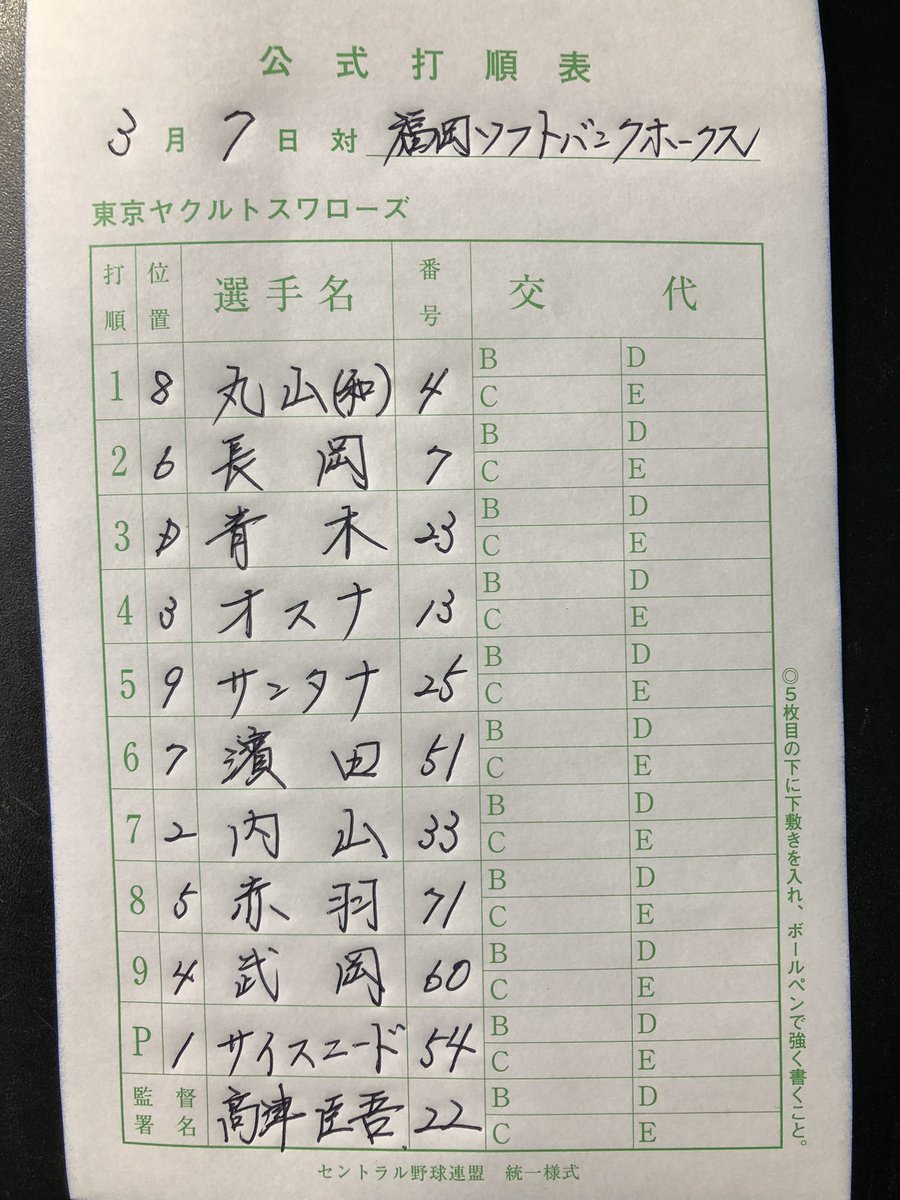 公式打順表
3月7日対 福岡ソフトバンクホークス
東京ヤクルトスワローズ
打順 位置 選手名 番号 交代
1 8 丸山(和) 4 B D
C E
2 6 長岡 7 B D
C E
3 D 青木 23 B D
C E
4 3 オスナ 13 B D
C E
5 9 サンタナ 25 B D
C E
6 7 濱田 51 B D
C E
7 2 内山 33 B D
C E
8 5 赤羽 71 B D
C E
9 4 武岡 60 B D
C E
P 1 サイスニード 54 B D
C E
監督署名 高津臣吾 22 B D
C E
◎5枚目の下に下敷きを入れ、ボールペンで強く書くこと。
セントラル野球連盟 統一様式